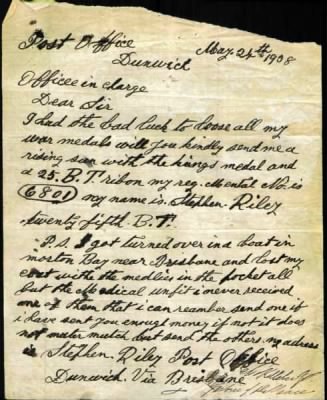 Post Office
Dunwich
May 24th 1938
Officer in clarge
Dear Sir
I had the bad luck to loose all my
war medals will you kendly send me a
rising sun with the kings medal and
a 25. B.T ribon my reg. Mental No. is
6801 my name is. Stephen. Riley
twenty fifth. B.T.
P.S. I got turned over in a boat in
morton Bay near Brisbane and lost my
coat withe the medlies in the pocket all
but the Medical unfit i never received
one of them that i can reamber send one if
i have sent you enough money if not it does
not mater mutch but send the others my adress
is Stephen. Riley Post Office
Dunwich. Via Brisbane